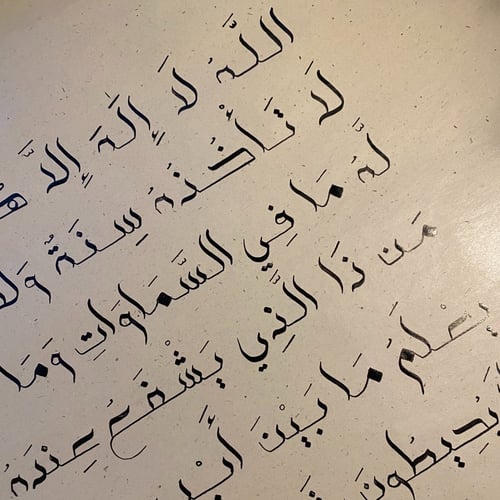 اللَّهُ لَا إِلَٰهَ إِلَّا
لَا تَأْخُذُهُ سِنَةٌ وَلَا
لَّهُ مَا فِي السَّمَاوَاتِ وَمَا
مَن ذَا الَّذِي يَشْفَعُ عِندَهُ
يَعْلَمُ مَا بَيْنَ
يُحِيطُونَ